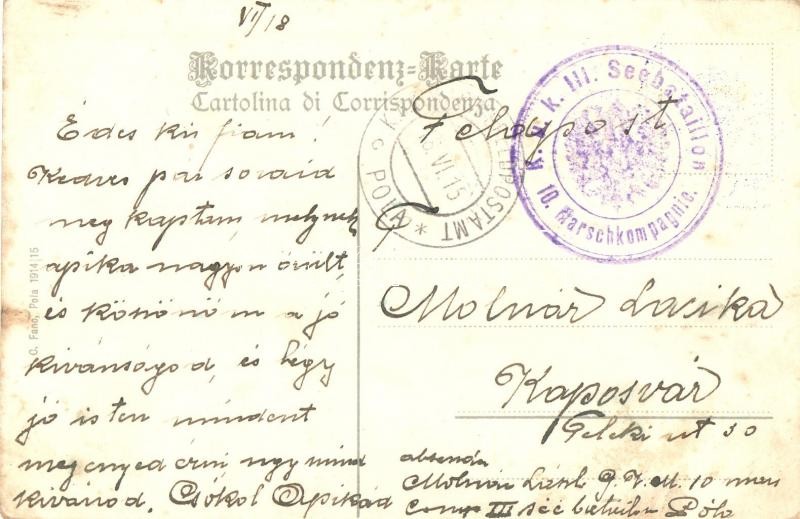 VI/18
Korrespondenz=Karte
Cartolina di Corrispondenza
Feldpost
K. u. k. III. Seebataillon
10. Marschkompagnie.
FELDPOSTAMT
POLA
VI.15
Édes kis fiam!
Kedves pár soraid
meg kaptam melynek
apika nagyon örült,
és köszönöm a jó
kivánságod, és hogy
jó isten mindent
meg engedérni ugy mind
kivánod. Csókol Apikád
G. Fano, Pola 1914/15
Molnár Lacika
Kaposvár
Teleki ut 30
absenda
Molnár 10
Comp III Póla